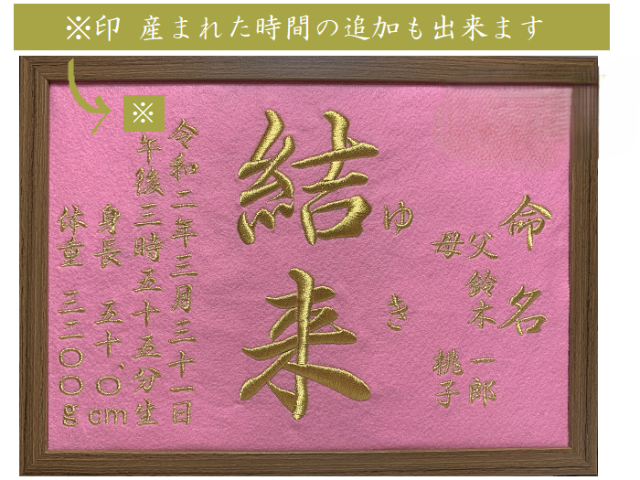 ※印 産まれた時間の追加も出来ます
命名
父 鈴木 一郎
母 桃子
ゆき
結来
令和二年三月三十一日
※
午後三時五十五分生
身長 五十.〇cm
体重 三二〇〇g